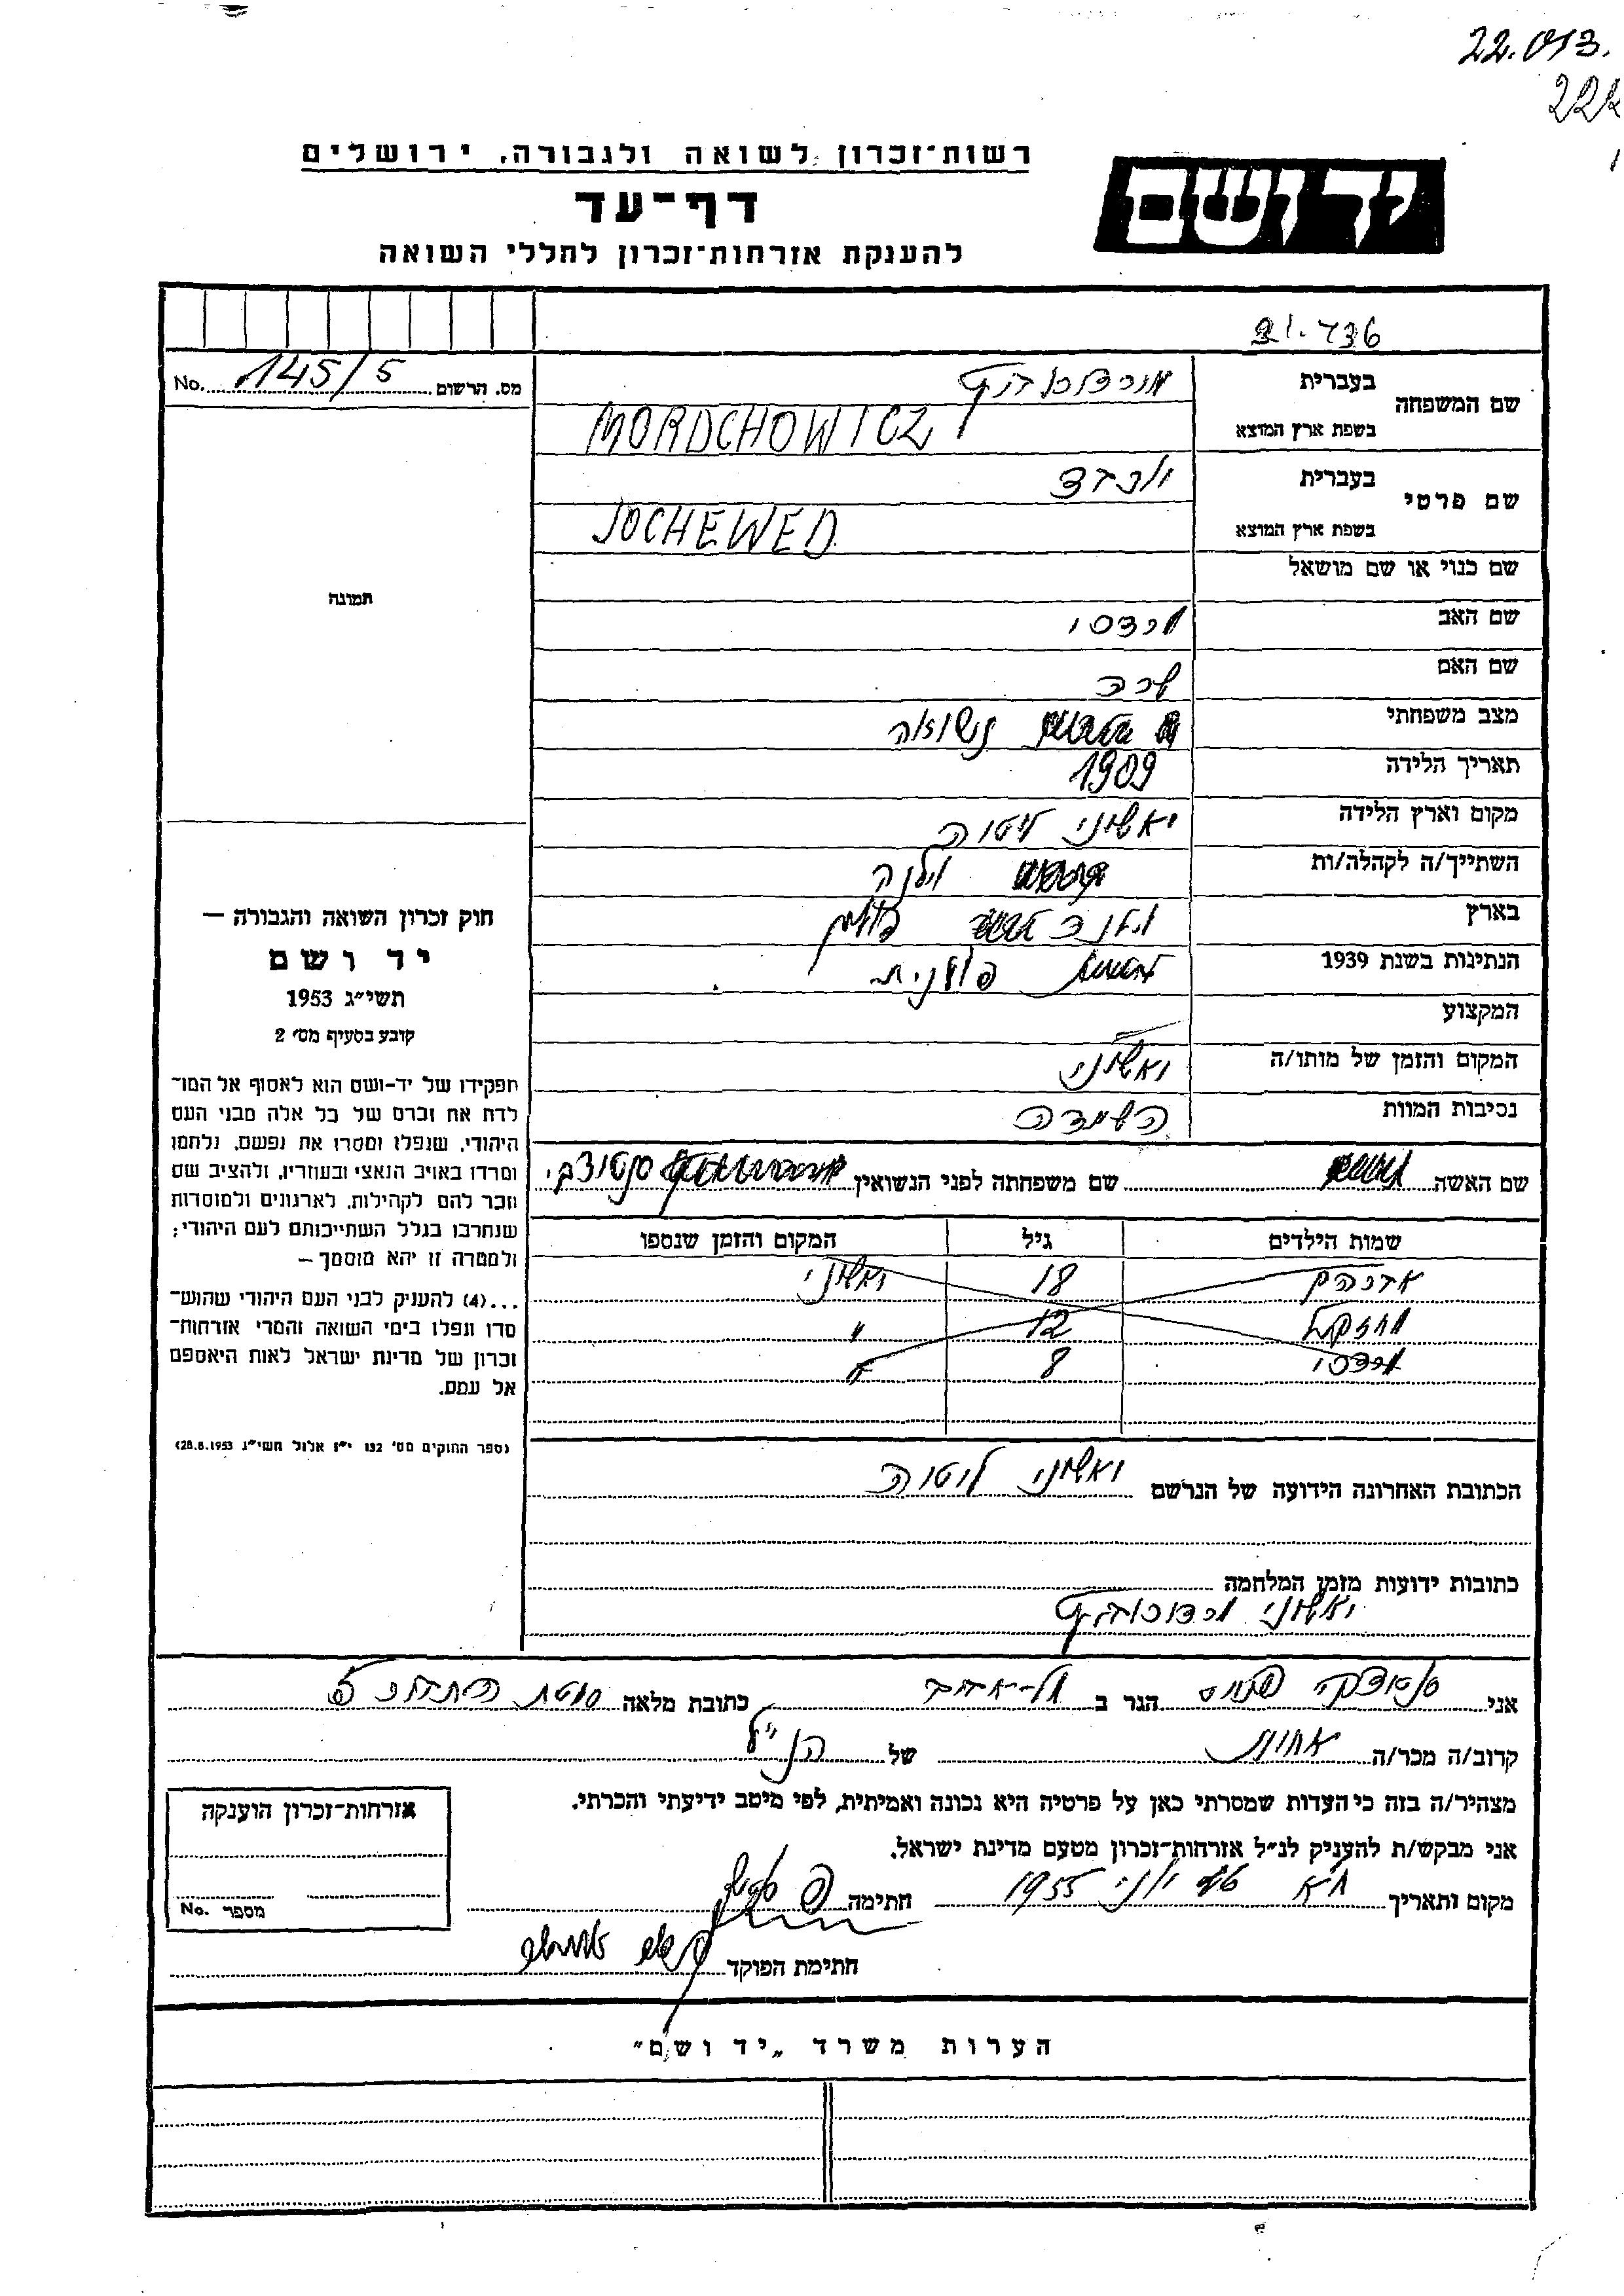 22.013.
222
רשות־זכרון לשואה ולגבורה, ירושלים
יד ושם
דף־עד
להענקת אזרחות־זכרון לחללי השואה
21.736
No. 145/5 מס. הרשום
שם המשפחה
בעברית
בשפת ארץ המוצא MORDCHOWICZ
שם פרטי
בעברית יוכבד
בשפת ארץ המוצא JOCHEWED
שם כנוי או שם מושאל
תמונה
שם האב
שם האם
מצב משפחתי נשואה
תאריך הלידה 1909
מקום וארץ הלידה ליטוה
השתייך/ה לקהלה/ות וילנה
בארץ פולין
הנתינות בשנת 1939 פולנית
המקצוע
המקום והזמן של מותו/ה
נסיבות המוות השמדה
חוק זכרון השואה והגבורה —
יד ושם
תשי״ג 1953
קובע בסעיף מס׳ 2
תפקידו של יד-ושם הוא לאסוף אל המו־
לדת את זכרם של כל אלה מבני העם
היהודי, שנפלו ומסרו את נפשם, נלחמו
ומרדו באויב הנאצי ובעוזריו, ולהציב שם
וזכר להם לקהילות, לארגונים ולמוסדות
שנחרבו בגלל השתייכותם לעם היהודי;
ולמטרה זו יהא מוסמך —
...(4) להעניק לבני העם היהודי שהוש־
מדו ונפלו בימי השואה והמרי אזרחות־
זכרון של מדינת ישראל לאות היאספם
אל עמם.
(ספר החוקים מס׳ 132 י״ז אלול תשי״ג 28.8.1953)
שם האשה שם משפחתה לפני הנשואין
שמות הילדים גיל המקום והזמן שנספו
אברהם 18
יחזקאל 12 "
8 "
הכתובת האחרונה הידועה של הנרשם ליטוה
כתובות ידועות מזמן המלחמה
אני הגר ב תל-אביב כתובת מלאה
קרוב/ה מכר/ה אחות של הנ״ל
מצהיר/ה בזה כי העדות שמסרתי כאן על פרטיה היא נכונה ואמיתית, לפי מיטב ידיעתי והכרתי.
אני מבקש/ת להעניק לנ״ל אזרחות־זכרון מטעם מדינת ישראל.
מקום ותאריך ת״א יוני 1955 חתימה
חתימת הפוקד
אזרחות־זכרון הוענקה
No. מספר
הערות משרד „יד ושם״